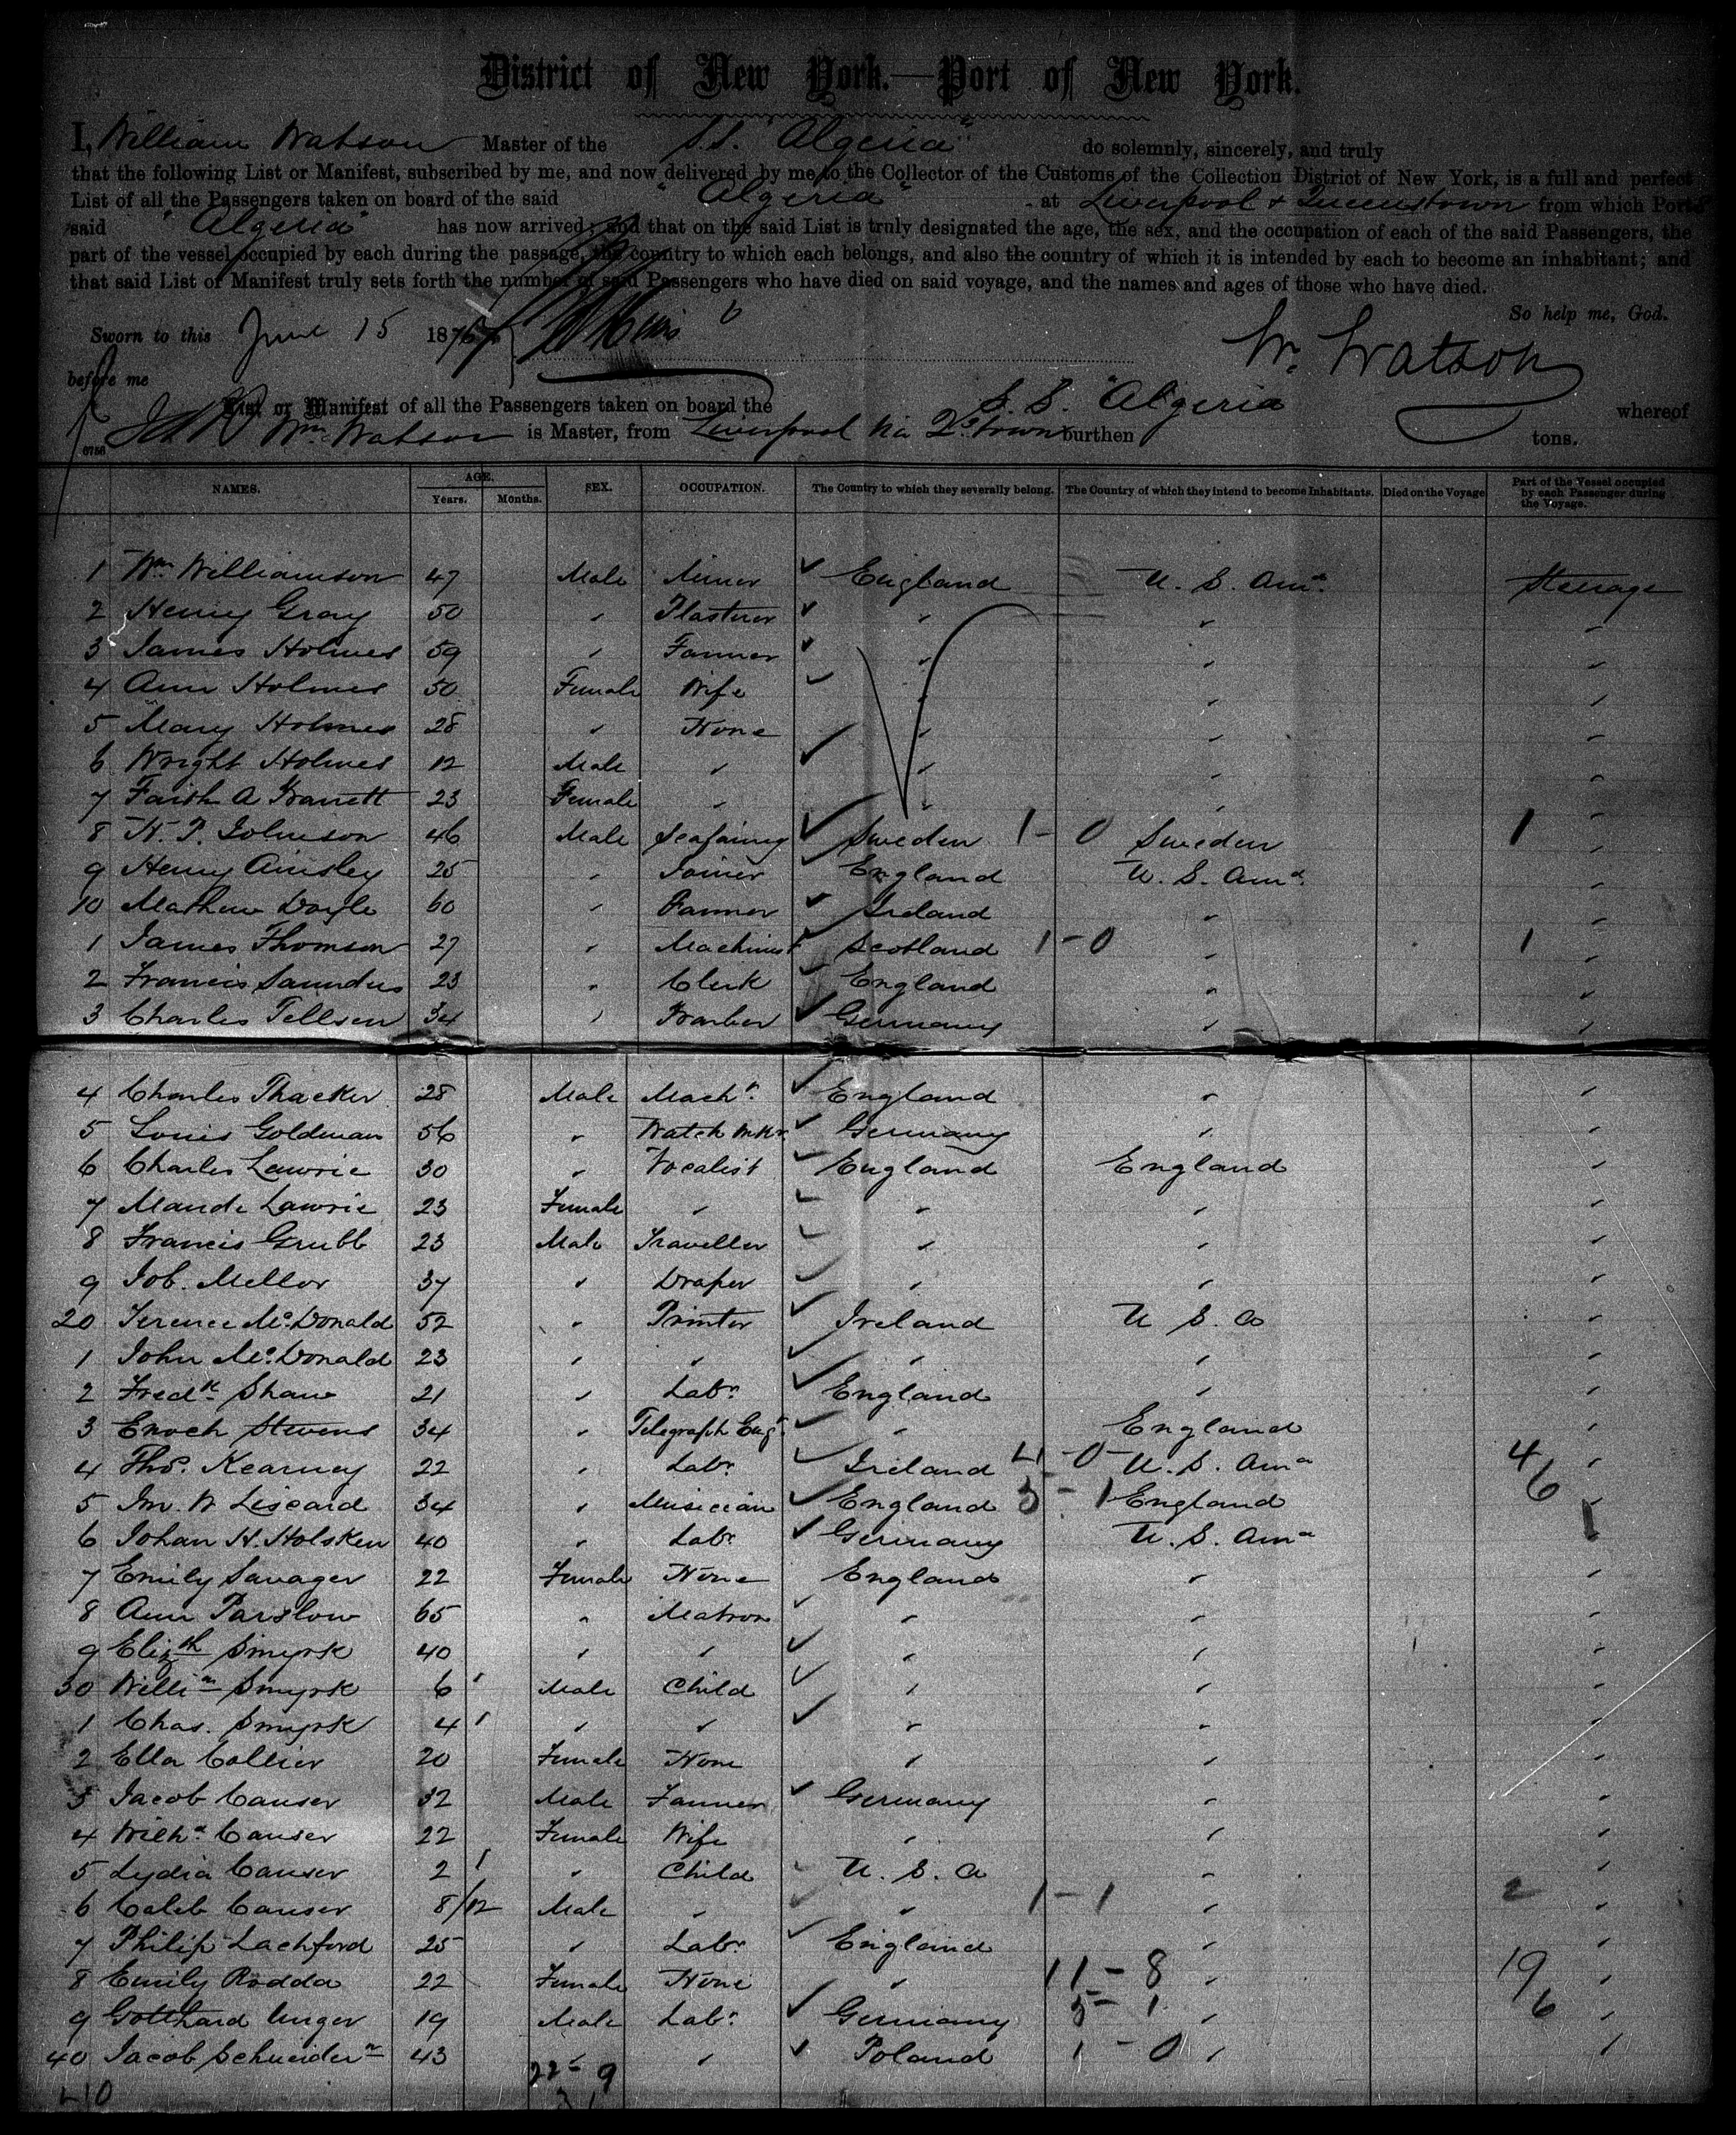 District of New York.—Port of New York.
I, William Watson Master of the S.S. "Algeria" do solemnly, sincerely, and truly
that the following List or Manifest, subscribed by me, and now delivered by me to the Collector of the Customs of the Collection District of New York, is a full and perfect
List of all the Passengers taken on board of the said "Algeria" at Liverpool & Queenstown from which Port
said "Algeria" has now arrived; and that on the said List is truly designated the age, the sex, and the occupation of each of the said Passengers, the
part of the vessel occupied by each during the passage, the country to which each belongs, and also the country of which it is intended by each to become an inhabitant; and
that said List or Manifest truly sets forth the number of said Passengers who have died on said voyage, and the names and ages of those who have died.
So help me, God.
Sworn to this June 15 187
before me
W. Watson
List or Manifest of all the Passengers taken on board the S.S. "Algeria" whereof
Wm Watson is Master, from Liverpool via Q'town burthen tons.
NAMES. AGE. Years. Months. SEX. OCCUPATION. The Country to which they severally belong. The Country of which they intend to become Inhabitants. Died on the Voyage Part of the Vessel occupied by each Passenger during the Voyage.
1 Wm Williamson 47 Male Miner England U. S. Ama Steerage
2 Henry Gray 50 " Plasterer " " "
3 James Holmes 59 " Farmer " " "
4 Ann Holmes 50 Female Wife " " "
5 Mary Holmes 28 " None " " "
6 Wright Holmes 12 Male " " " "
7 Faith A Barrett 23 Female " " " "
8 H. P. Johnson 46 Male Seafaring Sweden 1 - 0 Sweden 1 "
9 Henry Ainsley 25 " Joiner England U. S. Ama "
10 Mathew Doyle 60 " Farmer Ireland " "
1 James Thomson 27 " Machinist Scotland 1 - 0 " 1 "
2 Francis Saunders 23 " Clerk England " "
3 Charles Tellsen 34 " Barber Germany " "
4 Charles Thacker 28 Male Machr England " "
5 Louis Goldman 56 " Watch Mkr Germany " "
6 Charles Lawrie 30 " Vocalist England England "
7 Maude Lawrie 23 Female " " " "
8 Francis Grubb 23 Male Traveller " " "
9 Job. Mellor 37 " Draper " " "
20 Terence McDonald 52 " Printer Ireland U S. A "
1 John McDonald 23 " " " " "
2 Fredk Shaw 21 " Labr England " "
3 Enoch Stevens 34 " Telegraph Engr " England "
4 Thos. Kearney 22 " Labr Ireland 4 - 0 - U. S. Ama 4 "
5 Jno. W Liscard 34 " Musician England 5 - 1 England 6 "
6 Johan H. Holsken 40 " Labr Germany U. S. Ama 1
7 Emily Savager 22 Female None England " "
8 Ann Parslow 65 " Matron " " "
9 Elizth Smyrk 40 " " " " "
30 Willim Smyrk 6 Male Child " " "
1 Chas. Smyrk 4 " " " " "
2 Ella Collier 20 Female None " " "
3 Jacob Causer 32 Male Farmer Germany " "
4 Wilha Causer 22 Female Wife " " "
5 Lydia Causer 2 " Child U. S. A " "
6 Caleb Causer 8/12 Male " " 1 - 1 " 2 "
7 Philip Lachford 25 " Labr England " "
8 Emily Rodda 22 Female None " 11 - 8 " 19 "
9 Gotthard Unger 19 Male Labr Germany 5 - 1 " 6 "
40 Jacob Schneider 43 " " Poland 1 - 0 " "
22 - 9